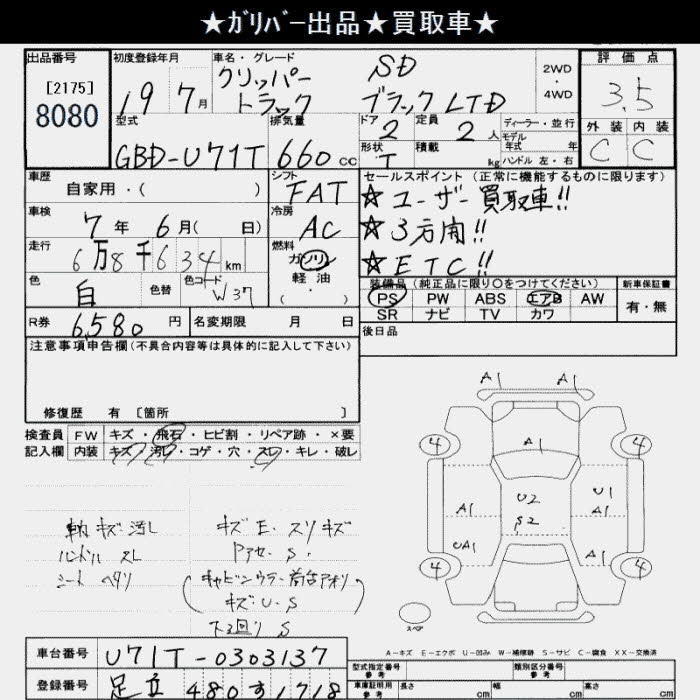 ★ｶﾞﾘﾊﾞｰ出品★買取車★
出品番号 初度登録年月 車名・グレード 評価点
[2175]
8080
19 7月
クリッパー トラック
SD
ブラックLTD
2WD
・
4WD
3.5
型式 排気量 ドア 定員 ディーラー・並行 外装 内装
GBD-U71T 660cc 2 2人 モデル年式 年 C C
形状 T 積載 kg ハンドル 左・右
車歴 シフト セールスポイント (正常に機能するものに限ります)
自家用・( ) FAT
★ユーザー買取車!!
車検 冷房
7年 6月( 日) AC
★3方開!!
走行 燃料
6万8千634km ガソリン
軽油
( ・ )
★ETC!!
色 色替 色コード
白 W37
装備品 (純正品に限り○をつけてください) 新車保証書
PS PW ABS エアB AW 有・無
SR ナビ TV カワ
R券 6,580円 名変期限 月 日
後日品
注意事項申告欄(不具合内容等は具体的に記入して下さい)
修復歴 有 [箇所 ]
検査員 FW キズ・飛石・ヒビ割・リペア跡・×要
記入欄 内装 キズ・汚レ・コゲ・穴・スレ・キレ・破レ
キズ 汚し キズE.スリキズ
ハンドル スレ Pアセ S.
シート ヘタリ
キズU.S
下回り S
A1 A1
4 4
A1
A1 U2 U1
S2 A1
UA1 A1
4 4
スペア
A－キズ E－エクボ U－凹み W－補修跡 S－サビ C－腐食 XX－交換済
車台番号 U71T-0303137
型式指定番号 参考 類別区分番号 参考
登録番号 足立 480す1718
車庫証明用 参考 長さ cm 幅 cm 高さ cm